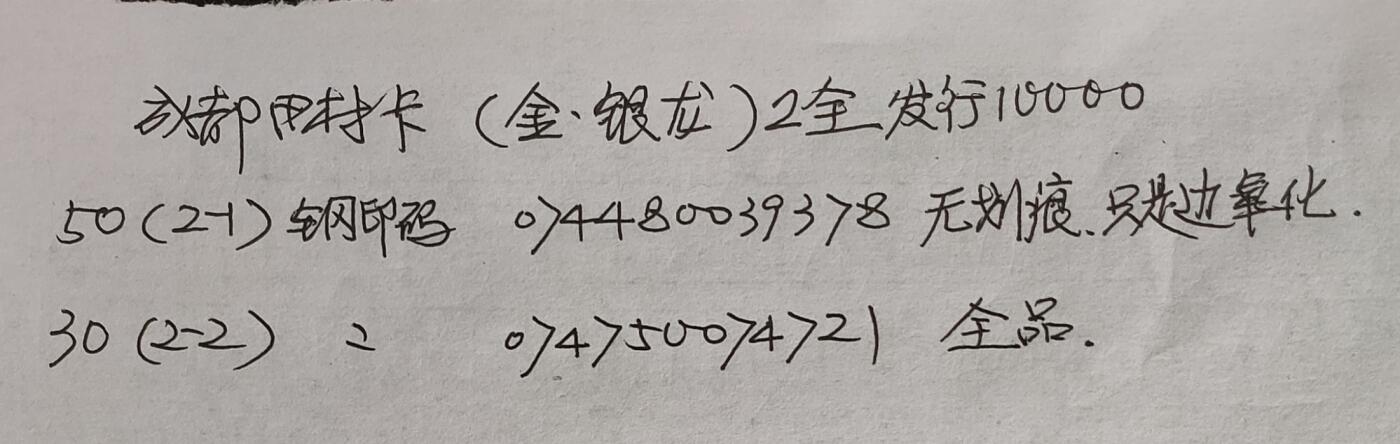 成都田村卡(金·银龙)2全发行10000
50(2-1)钢印码 074480039378 无划痕.只是边氧化.
30(2-2) 〃 074750074721 全品.